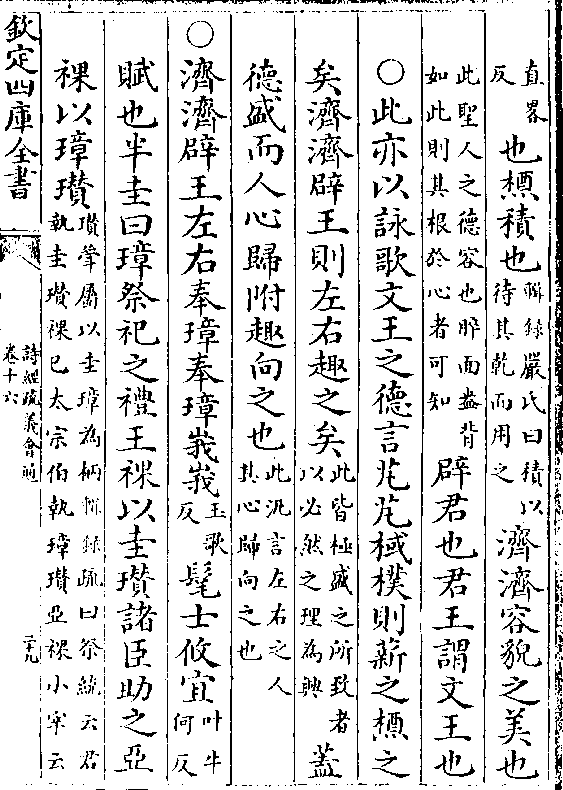 直畧反也槱積也輯錄嚴氏曰積以待其乾而用之濟濟容貌之美也
此聖人之德容也睟面盎背如此則其根於心者可知辟君也君王謂文王也
○此亦以詠歌文王之德言芃芃棫樸則薪之槱之
矣濟濟辟王則左右趣之矣此皆極盛之所致者以必然之理為興蓋
德盛而人心歸附趣向之也此汎言左右之人其心歸向之也
○濟濟辟王左右奉璋奉璋峩峩五歌反髦士攸宜叶牛何反
賦也半圭曰璋祭祀之禮王祼以圭瓚諸臣助之亞
祼以璋瓚瓚聲屬以圭璋為柄輯錄疏曰祭統云君執圭瓚祼巳太宗伯執璋瓚亞祼小宰云
欽定四庫全書
詩經疏義會通
卷十六
二十九